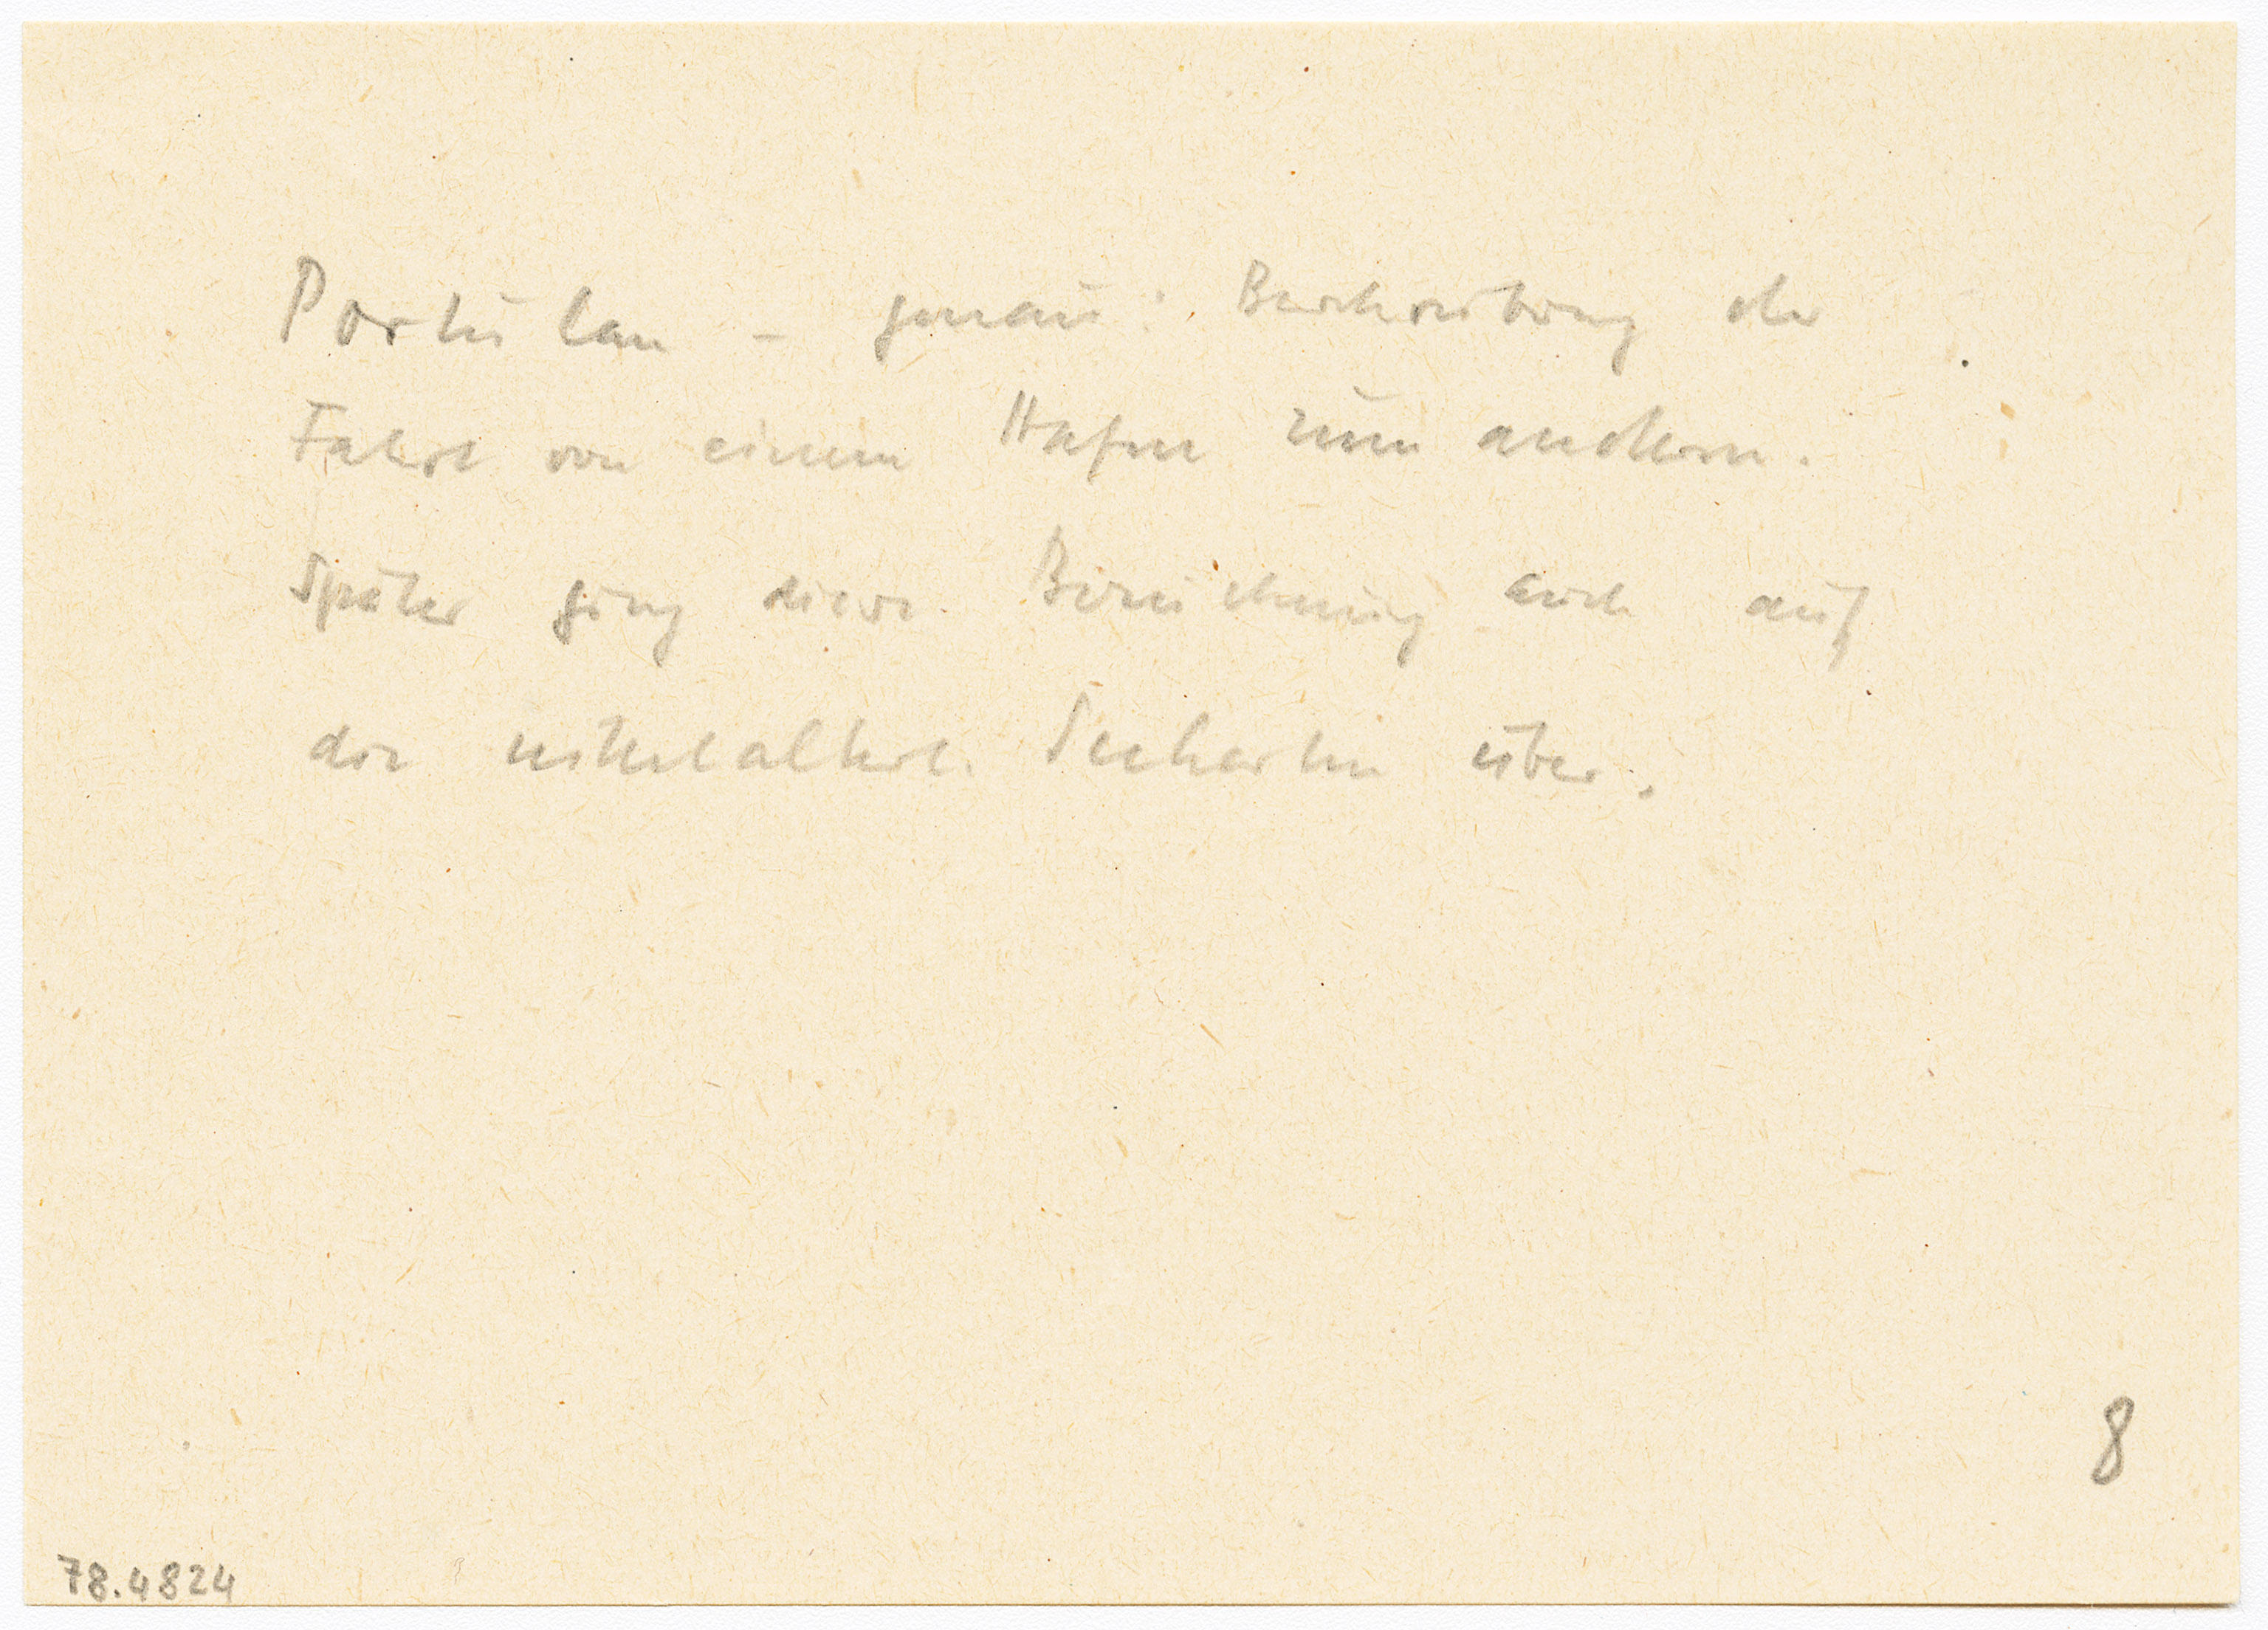 Portulan - genau: Beschreibung der
Fahrt von einem Hafen zum andern.
Später ging diese Bezeichnung auch auf
die mittelalterl. Seekarten über.
8
78.4824